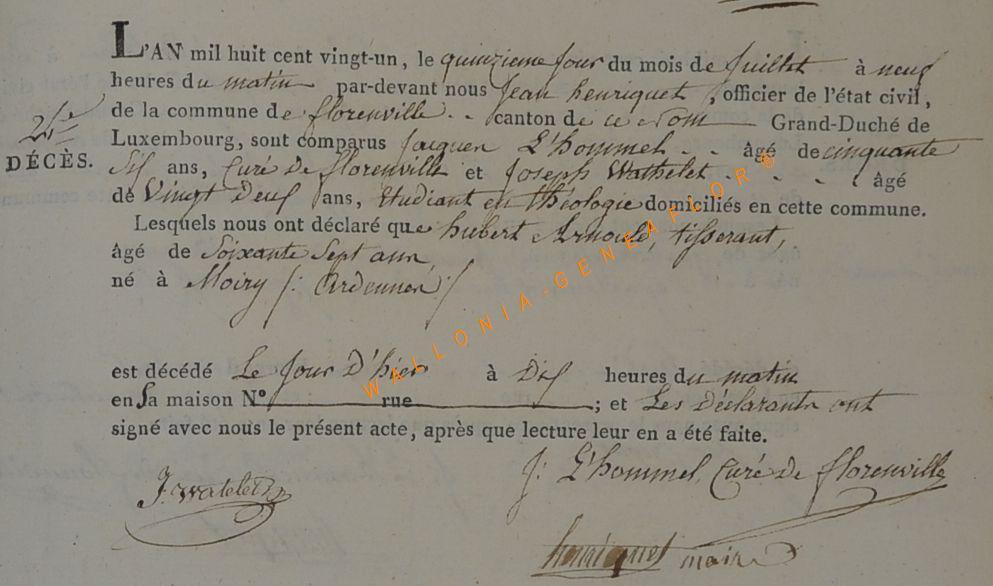 L'AN mil huit cent vingt-un, le quinzieme jour du mois de Juillet à neuf
heures du matin par-devant nous Jean henriquet, officier de l'état civil,
de la commune de florenville canton de ce nom Grand-Duché de
2e
DÉCÈS.
Luxembourg, sont comparus Jacques L'hommel âgé de cinquante
Six ans, Curé De florenville et Joseph Wathelet âgé
de Vingt Deux ans, étudiant en théologie domiciliés en cette commune.
Lesquels nous ont déclaré que hubert Arnould, tisserant,
âgé de Soixante Sept ans
né à Moiry /: Ardennes :/
est décédé Le Jour D'hier à Dix heures du matin
en Sa maison N° rue ; et Les Déclarants ont
signé avec nous le présent acte, après que lecture leur en a été faite.
J. Watelet
J: L'hommel, Curé De florenville
henriquet maire
WALLONIA-GENEAFI.ORG